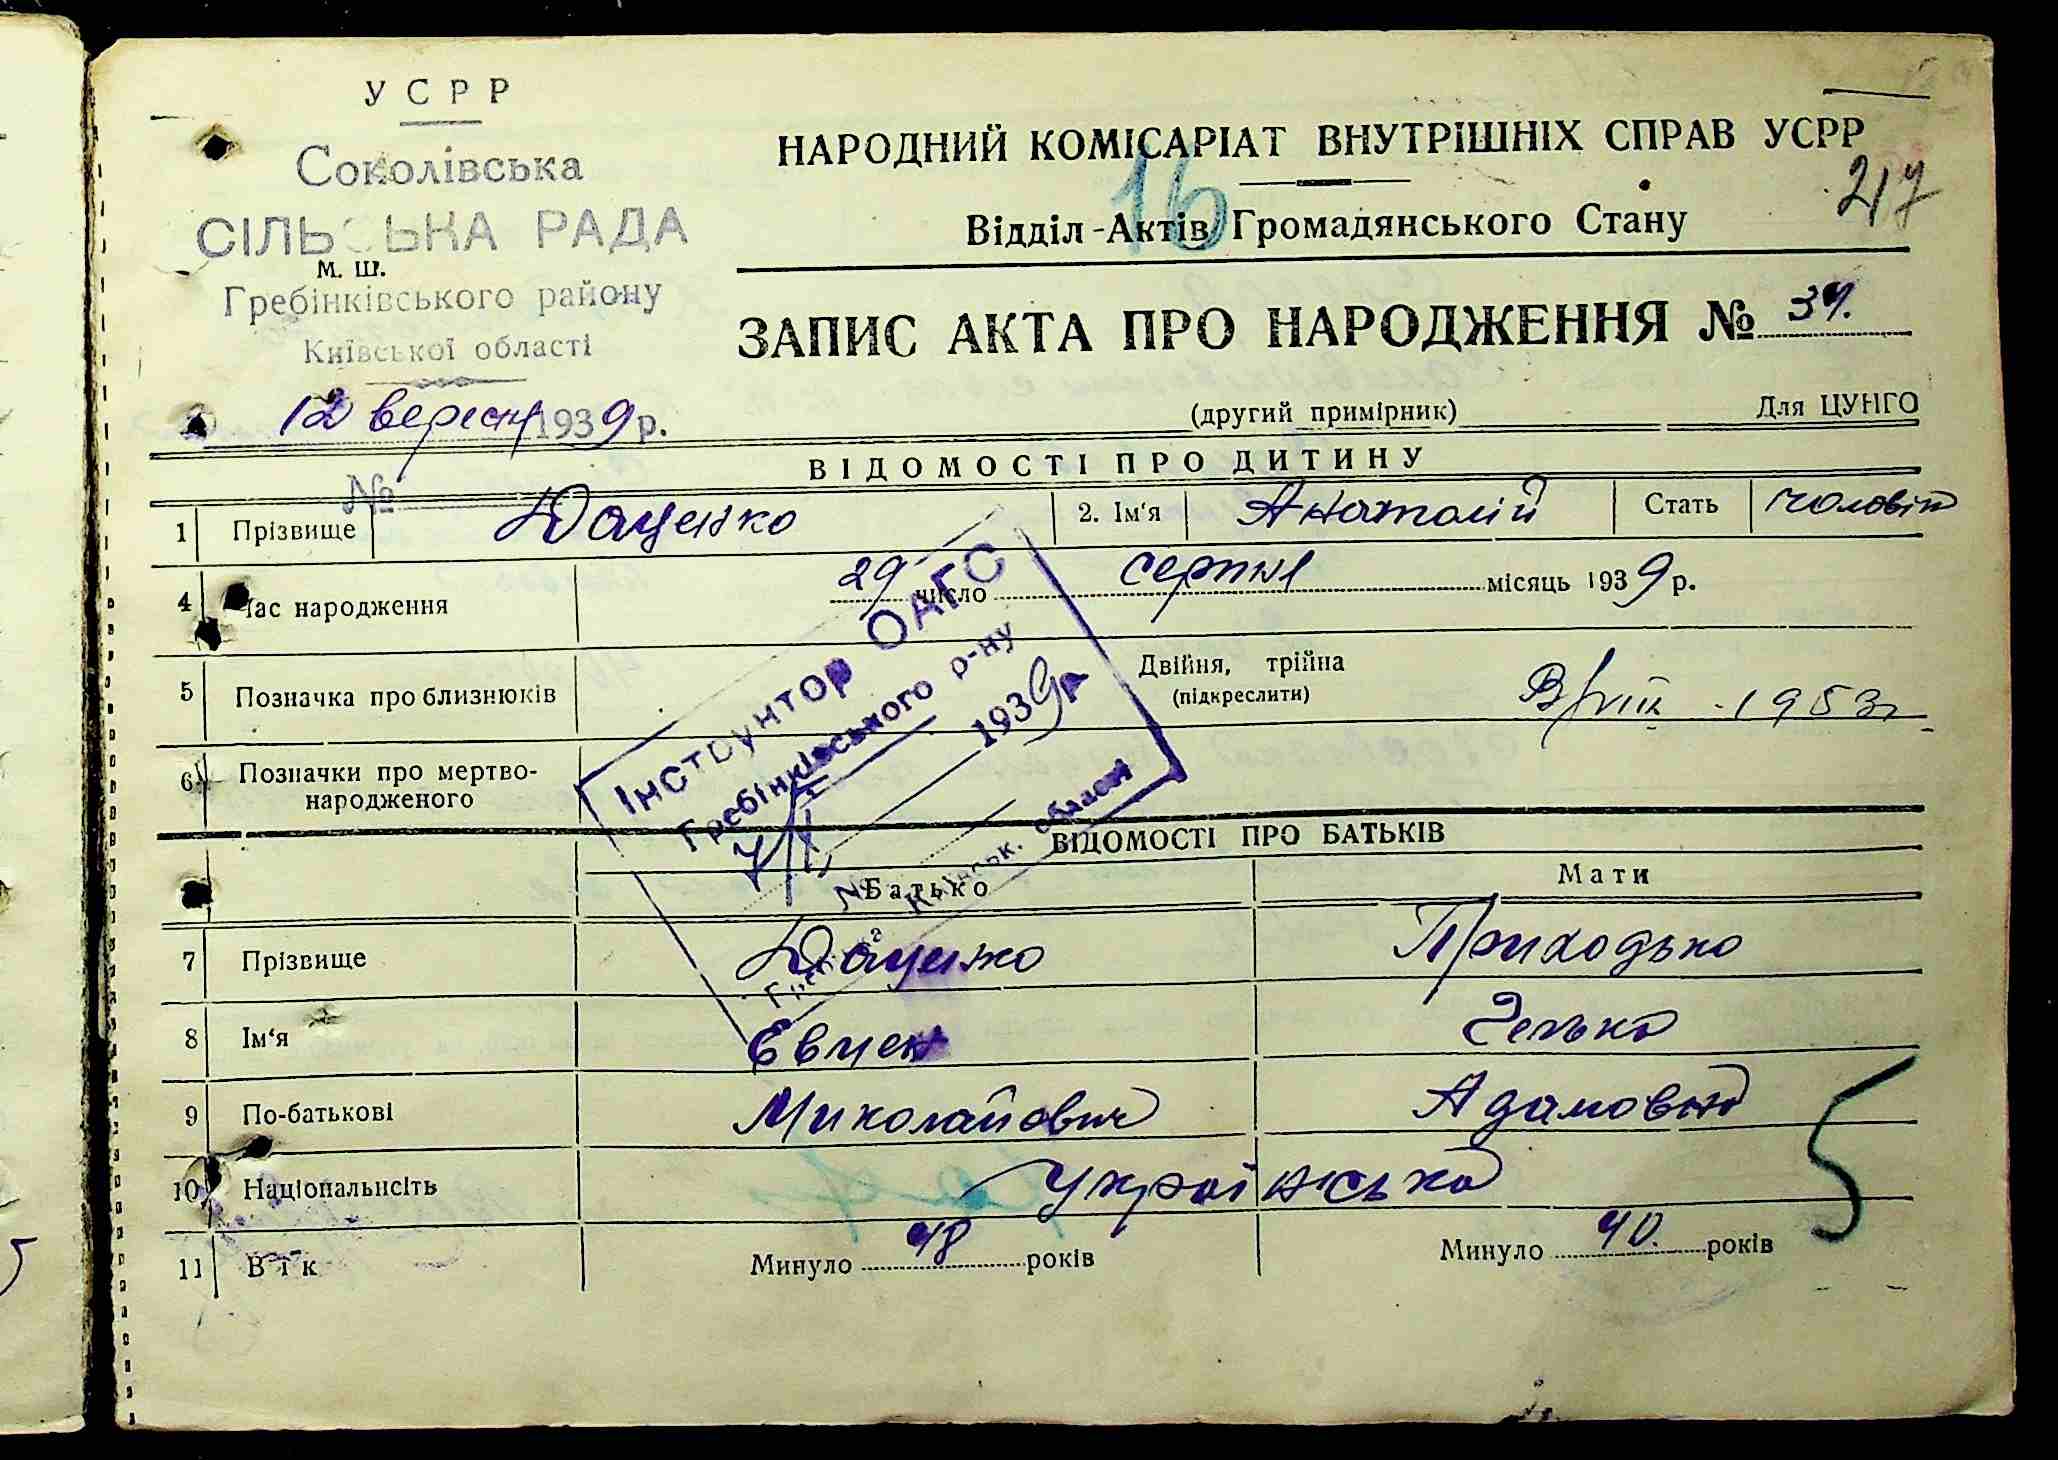 УСРР
Соколівська
СІЛЬСЬКА РАДА
М. Ш.
Гребінківського району
Київської області
12 вересн 1939 р.
№
НАРОДНИЙ КОМІСАРІАТ ВНУТРІШНІХ СПРАВ УСРР
16
217
Відділ Актів Громадянського Стану
ЗАПИС АКТА ПРО НАРОДЖЕННЯ №
(другий примірник)
Для ЦУНГО
ВІДОМОСТІ ПРО ДИТИНУ
1 Прізвище Даценко 2. Ім'я Анатолій Стать
4 Час народження 29 число серпня місяць 1939 р.
5 Позначка про близнюків Двійня, трійна
(підкреслити)
1953
6 Позначки про мертво-
народженого
Інструктор ОАГС
Гребінківського р-ну
1939 р
№
Київськ. області
ВІДОМОСТІ ПРО БАТЬКІВ
Батько Мати
7 Прізвище Даценко Приходько
8 Ім'я
9 По-батькові Миколайович Адамовна
10 Національність Українська
11 Вік Минуло 48 років Минуло 40. років
5